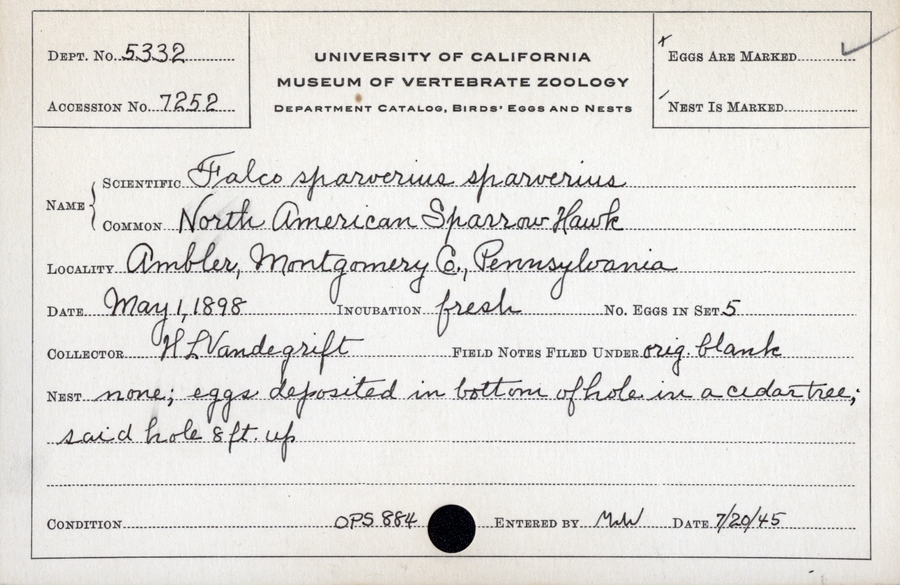 DEPT. No. 5332
ACCESSION No. 7252
UNIVERSITY OF CALIFORNIA
MUSEUM OF VERTEBRATE ZOOLOGY
DEPARTMENT CATALOG, BIRDS' EGGS AND NESTS
EGGS ARE MARKED
NEST IS MARKED
NAME
SCIENTIFIC Falco sparverius sparverius
COMMON North American Sparrow Hawk
LOCALITY Ambler, Montgomery C., Pennsylvania
DATE May 1, 1898 INCUBATION fresh No. EGGS IN SET 5
COLLECTOR H L Vandegrift FIELD NOTES FILED UNDER orig. blank
NEST none; eggs deposited in bottom of hole in a cedar tree;
said hole 8 ft. up
CONDITION OPS 884 ENTERED BY DATE 7/20/45